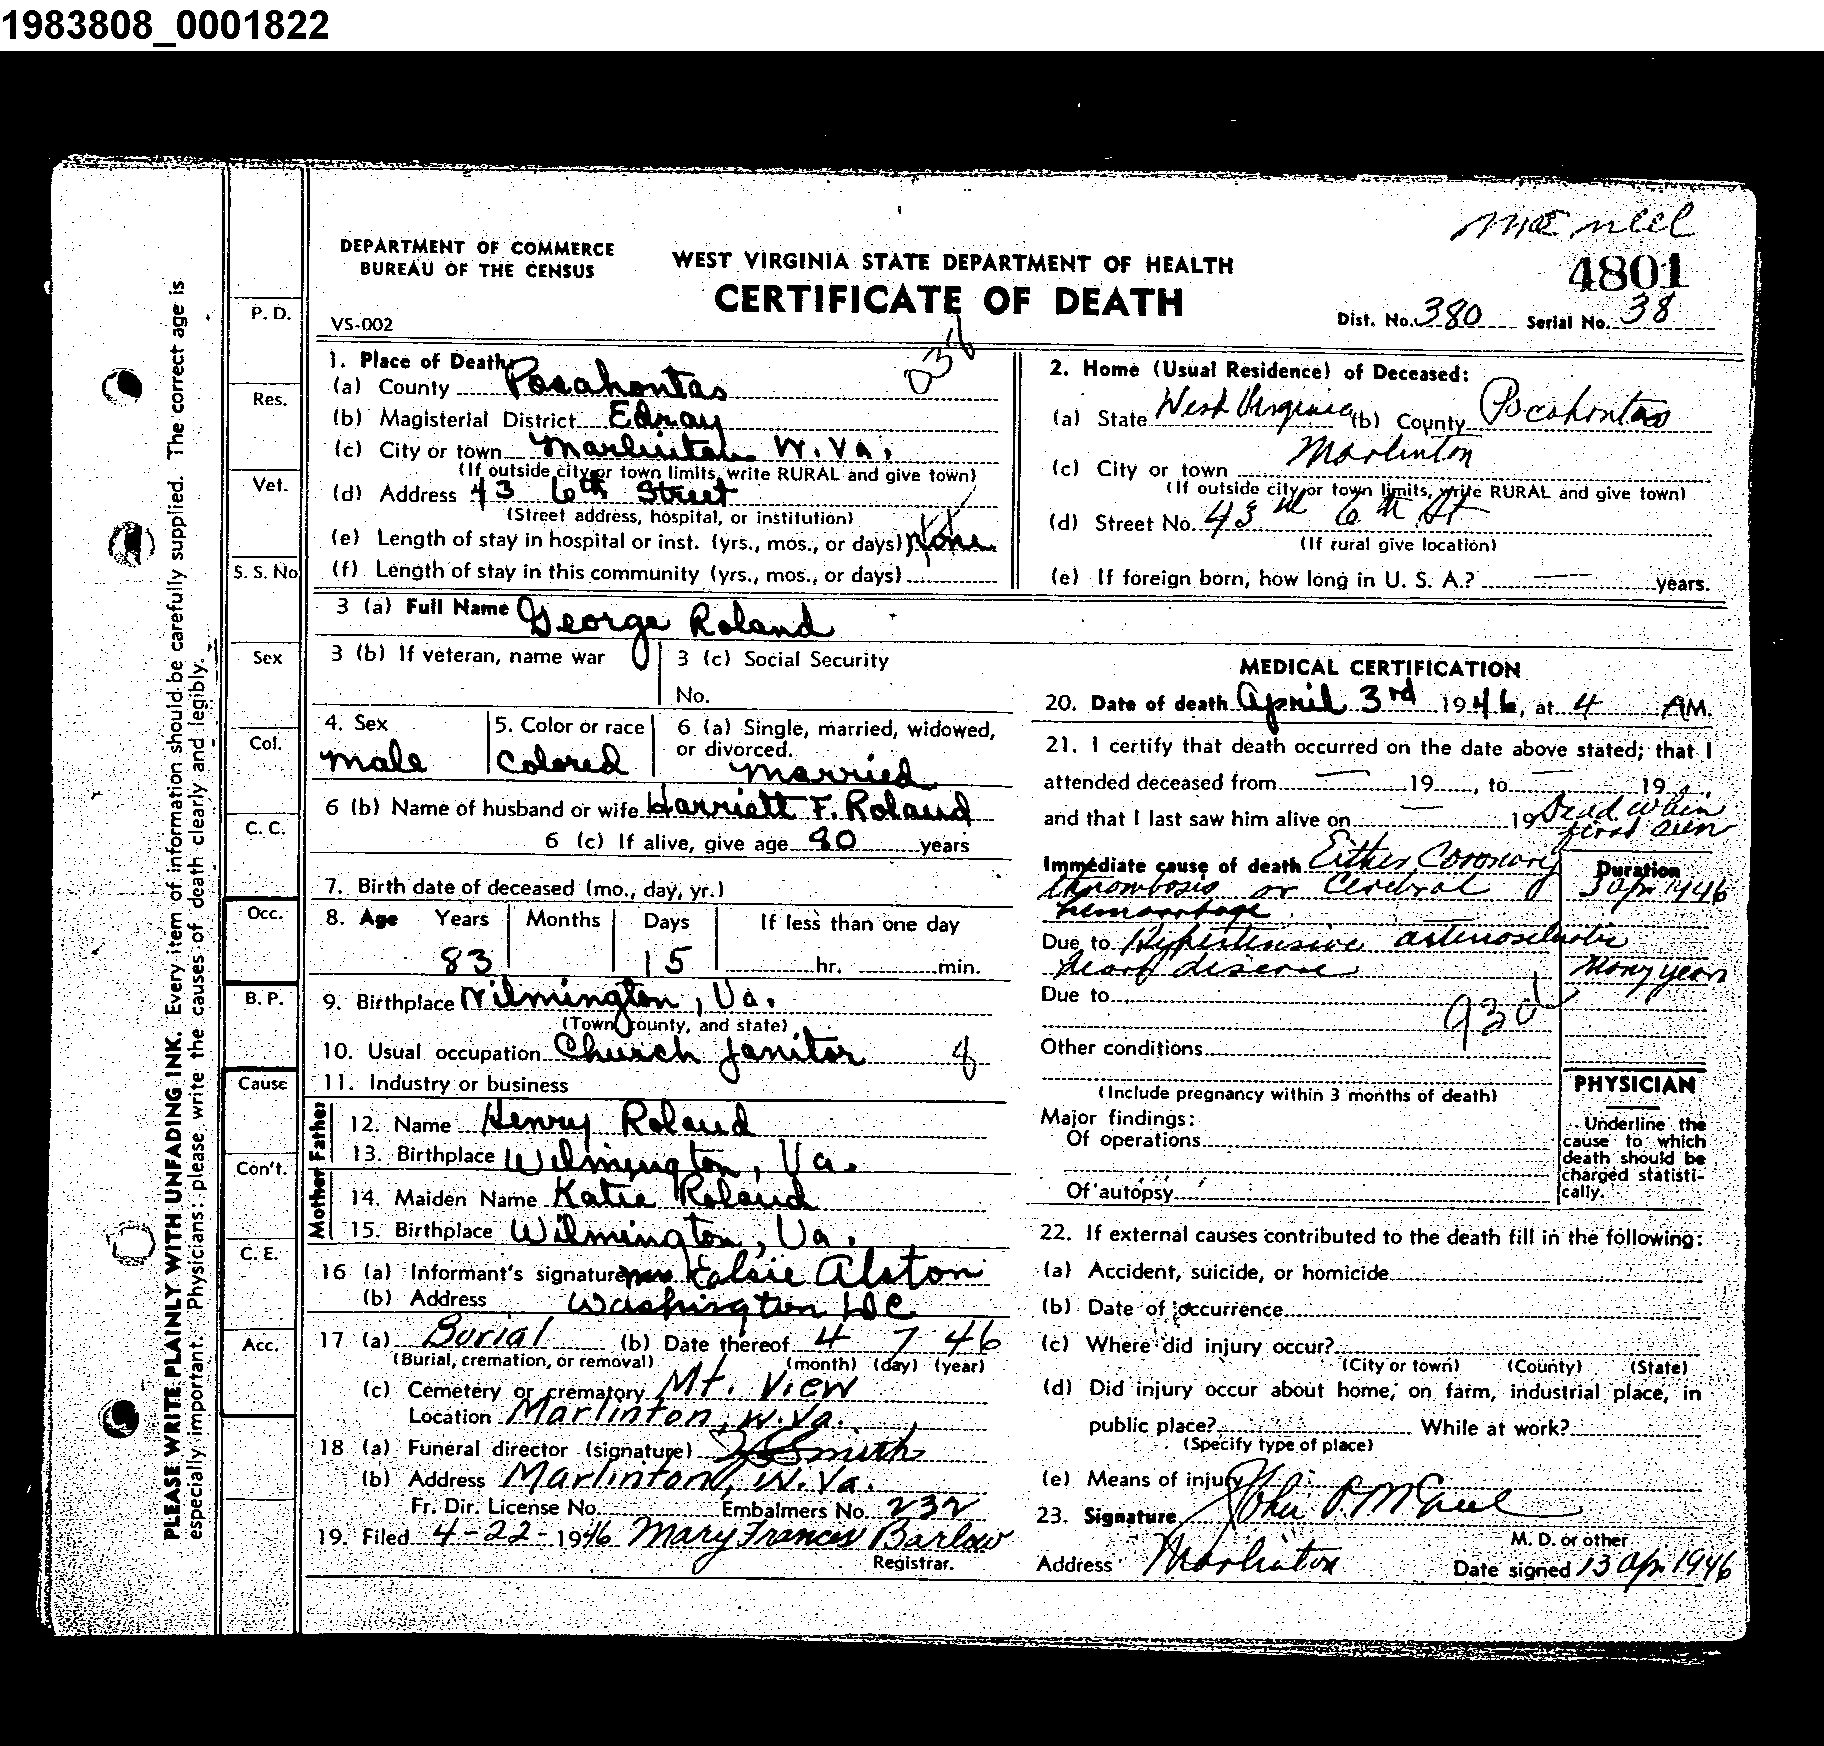 1983808_0001822
McNeel
DEPARTMENT OF COMMERCE
BUREAU OF THE CENSUS
WEST VIRGINIA STATE DEPARTMENT OF HEALTH
4801
CERTIFICATE OF DEATH
VS-002
Dist. No. 380 Serial No. 38
036
PLEASE WRITE PLAINLY WITH UNFADING INK. Every item of information should be carefully supplied. The correct age is
especially important. Physicians: please write the causes of death clearly and legibly.
P. D.
Res.
Vet.
S. S. No
Sex
Col.
C. C.
Occ.
B. P.
Cause
Con't.
C. E.
Acc.
1. Place of Death:
(a) County Pocahontas
(b) Magisterial District Edray
(c) City or town Marlinton W. Va.
(If outside city or town limits, write RURAL and give town)
(d) Address 43 6th Street
(Street address, hospital, or institution)
(e) Length of stay in hospital or inst. (yrs., mos., or days) None
(f) Length of stay in this community (yrs., mos., or days)
2. Home (Usual Residence) of Deceased:
(a) State West Virginia (b) County Pocahontas
(c) City or town Marlinton
(If outside city or town limits, write RURAL and give town)
(d) Street No. 43 6th St
(If rural give location)
(e) If foreign born, how long in U. S. A.? — years.
3 (a) Full Name George Roland
3 (b) If veteran, name war
3 (c) Social Security
No.
4. Sex
male
5. Color or race
Colored
6 (a) Single, married, widowed,
or divorced.
married
6 (b) Name of husband or wife Harriett F. Roland
6 (c) If alive, give age 80 years
7. Birth date of deceased (mo., day, yr.)
8. Age Years Months Days If less than one day
83 15 hr. min.
9. Birthplace Wilmington, Va.
(Town, county, and state)
10. Usual occupation Church janitor
11. Industry or business
Father
12. Name Henry Roland
13. Birthplace Wilmington, Va.
Mother
14. Maiden Name Katie Roland
15. Birthplace Wilmington, Va.
16 (a) Informant's signature Mrs. Elsie Alston
(b) Address Washington D.C.
17 (a) Burial (b) Date thereof 4 7 46
(Burial, cremation, or removal) (month) (day) (year)
(c) Cemetery or crematory Mt. View
Location Marlinton, W. Va.
18 (a) Funeral director (signature) Smith
(b) Address Marlinton, W. Va.
Fr. Dir. License No. Embalmers No. 232
19. Filed 4-22-1946 Mary Frances Barlow
Registrar.
MEDICAL CERTIFICATION
20. Date of death April 3rd 1946, at 4 AM.
21. I certify that death occurred on the date above stated; that I
attended deceased from — 19 , to — 19 ,
and that I last saw him alive on — 19 Dead when
first seen
Immediate cause of death Either Coronary
thrombosis or Cerebral
hemorrhage
Duration
3 Apr 1946
Due to Hypertensive arteriosclerotic
heart disease
Many years
Due to
93d
Other conditions
(Include pregnancy within 3 months of death)
Major findings:
Of operations
Of autopsy
PHYSICIAN
Underline the
cause to which
death should be
charged statisti-
cally.
22. If external causes contributed to the death fill in the following:
(a) Accident, suicide, or homicide
(b) Date of occurrence
(c) Where did injury occur?
(City or town) (County) (State)
(d) Did injury occur about home, on farm, industrial place, in
public place? While at work?
(Specify type of place)
(e) Means of injury
23. Signature John P. McGuire
M. D. or other
Address Marlinton Date signed 13 Apr 1946